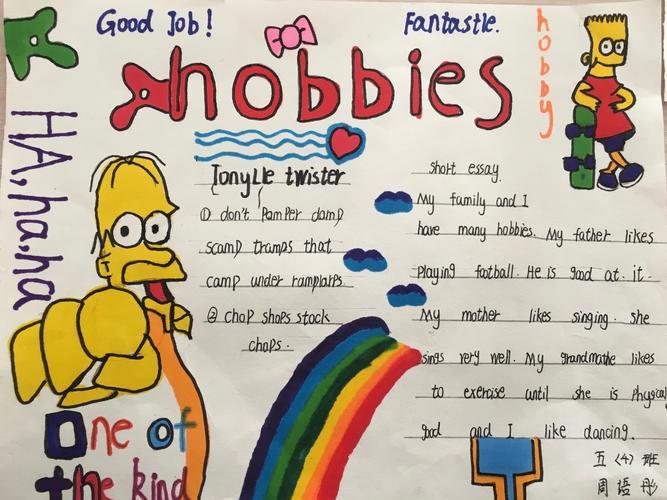 Good Job!
Fantastle.
hobbies
hobby
HA,ha,ha
Tonyue twister
① don't Pamper damp
scamp tramps that
camp under ramplarps.
② chop shops stock
chops.
short essay
My family and I
have many hobbies. My father likes
playing football. He is good at. it.
My mother likes singing. she
sings very well. My grandmathe likes
to exercise until she is physical
good and I like dancing.
One of
the kind
五〈4〉班
周语彤